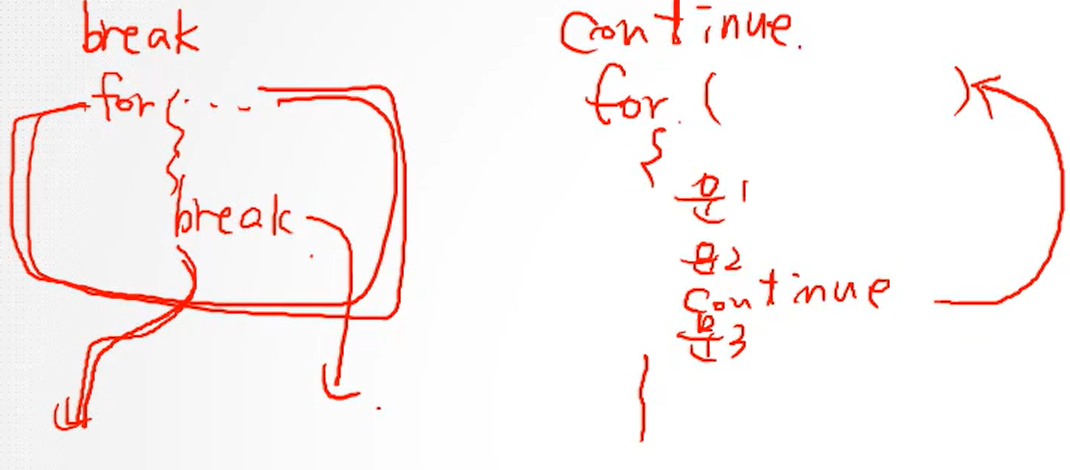 break
for { . . .
break
continue.
for. (          )
{
문1
문2
continue
문3
}